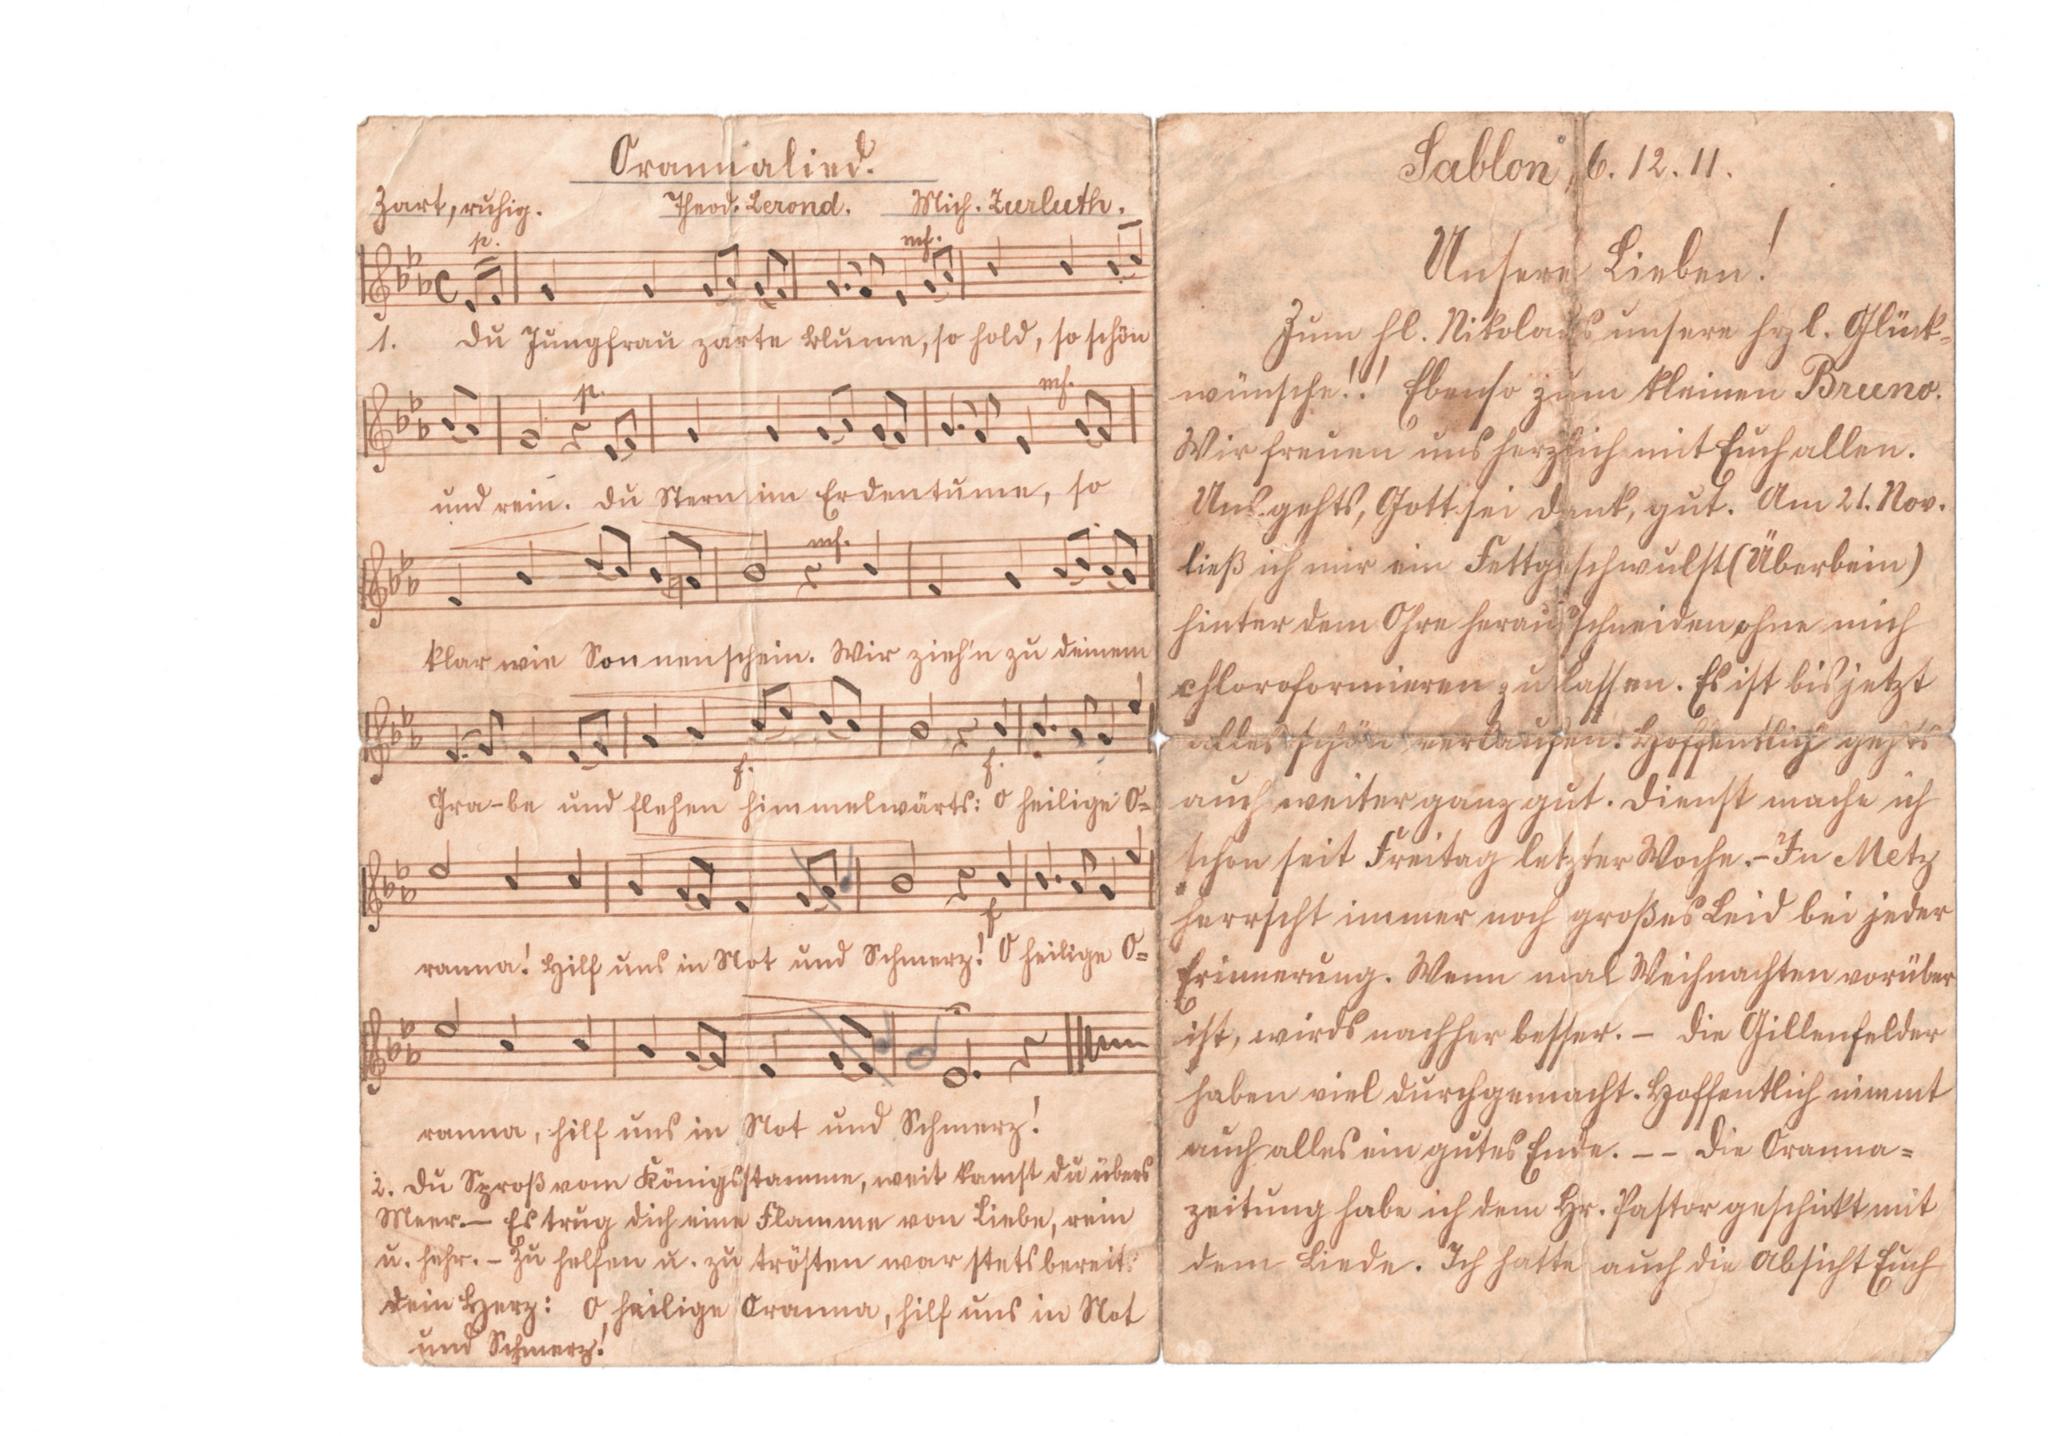 Orannalied.
Zart, ruhig. Theod. Lerond. Mich. Zurluth.
p. mf.
1. Du Jungfrau zarte Blume, so hold, so schön
p. mf.
und rein. Du Stern im Erdentume, so
mf.
klar wie Sonnenschein. Wir zieh'n zu deinem
f. f.
Gra-be und flehen himmelwärts: O heilige O=
f
ranna! Hilf uns in Not und Schmerz! O heilige O=
ranna, hilf uns in Not und Schmerz!
2. Du Sproß vom Königsstamme, weit kamst du übers
Meer. – Es trug dich eine Flamme von Liebe, rein
u. hehr. – Zu helfen u. zu trösten war stets bereit
dein Herz: O heilige Oranna, hilf uns in Not
und Schmerz!
Sablon, 6. 12. 11.
Unsere Lieben!
Zum hl. Nikolaus unsere hrzl. Glück-
wünsche!! Ebenso zum kleinen Bruno.
Wir freuen uns herzlich mit Euch allen.
Uns gehts, Gott sei dank, gut. Am 21. Nov.
ließ ich mir ein Fettgeschwulst (Überbein)
hinter dem Ohre herausschneiden ohne mich
chloroformieren zu lassen. Es ist bis jetzt
alles schön verlaufen. Hoffentlich geht's
auch weiter ganz gut. Dienst mache ich
schon seit Freitag letzter Woche. – In Metz
herrscht immer noch großes Leid bei jeder
Erinnerung. Wenn mal Weihnachten vorüber
ist, wirds nachher besser. – Die Gillenfelder
haben viel durchgemacht. Hoffentlich nimmt
auch alles ein gutes Ende. – – Die Oranna=
zeitung habe ich dem Hr. Pastor geschickt mit
dem Liede. Ich hatte auch die Absicht Euch